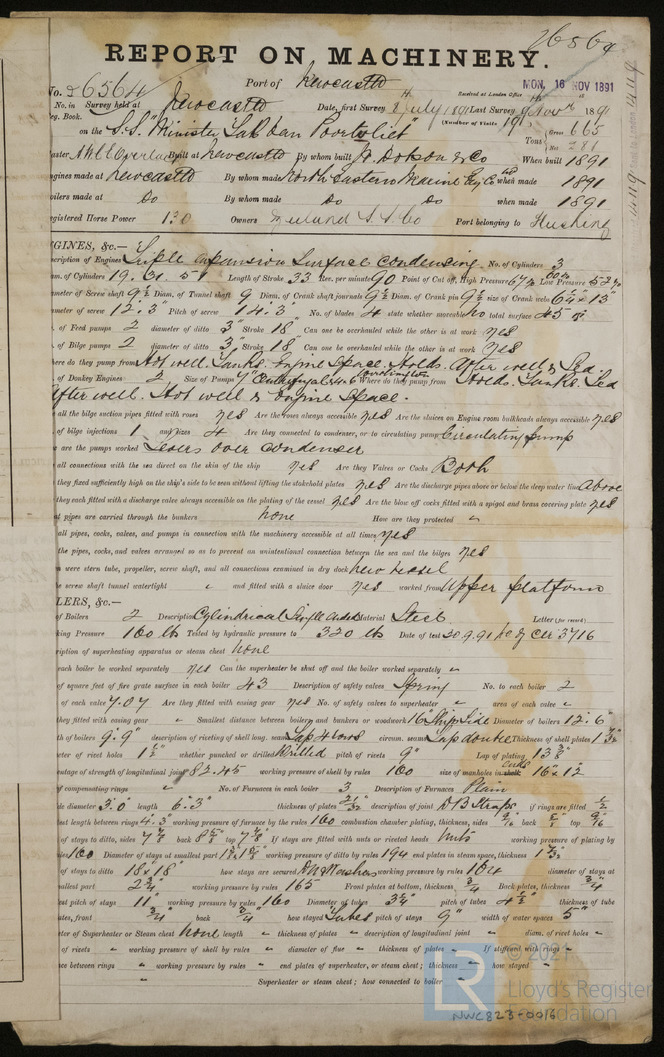 26564
REPORT ON MACHINERY.
No. 26564 Port of Newcastle Received at London Office MON. 16 NOV 1891
No. in Survey held at Newcastle Date, first Survey 8th July 1891 Last Survey 9th Novr 1891
eg. Book. (Number of Visits 19)
on the S.S. "Minister Tak van Poortvliet" Tons Gross 665
Net 281
aster Built at Newcastle By whom built W. Dobson & Co When built 1891
ngines made at Newcastle By whom made North Eastern Marine Eng Co Ltd when made 1891
oilers made at Do By whom made Do Do when made 1891
egistered Horse Power 130 Owners Zeeland S.S. Co Port belonging to Flushing
NGINES, &c.—
scription of Engines Triple expansion Surface Condensing No. of Cylinders 3
am. of Cylinders 19. 31. 51 Length of Stroke 33 Rev. per minute 90 Point of Cut off, High Pressure Low Pressure
ameter of Screw shaft 9½ Diam. of Tunnel shaft 9 Diam. of Crank shaft journals 9½ Diam. of Crank pin 9½ size of Crank webs 6¼ x 13"
ameter of screw 12.3" Pitch of screw 14.3" No. of blades 4 state whether moveable no total surface 45
of Feed pumps 2 diameter of ditto 3" Stroke 18" Can one be overhauled while the other is at work yes
of Bilge pumps 2 diameter of ditto 3" Stroke 18" Can one be overhauled while the other is at work yes
here do they pump from Hot well. Tanks. Engine Space. Holds. After well & Sea
of Donkey Engines 2 Size of Pumps Where do they pump from Holds. Tanks. Sea
After well. Hot well & Engine Space.
all the bilge suction pipes fitted with roses yes Are the roses always accessible yes Are the sluices on Engine room bulkheads always accessible yes
of bilge injections 1 and sizes 4 Are they connected to condenser, or to circulating pump Circulating pump
w are the pumps worked Levers over Condenser
all connections with the sea direct on the skin of the ship yes Are they Valves or Cocks Both
they fixed sufficiently high on the ship's side to be seen without lifting the stokehold plates yes Are the discharge pipes above or below the deep water line above
they each fitted with a discharge valve always accessible on the plating of the vessel yes Are the blow off cocks fitted with a spigot and brass covering plate yes
at pipes are carried through the bunkers none How are they protected "
all pipes, cocks, valves, and pumps in connection with the machinery accessible at all times yes
the pipes, cocks, and valves arranged so as to prevent an unintentional connection between the sea and the bilges yes
n were stern tube, propeller, screw shaft, and all connections examined in dry dock new vessel
he screw shaft tunnel watertight " and fitted with a sluice door yes worked from Upper platform
LERS, &c.—
of Boilers 2 Description Cylindrical Single Ended Material Steel Letter (for record)
king Pressure 160 lb Tested by hydraulic pressure to 320 lb Date of test 30.9.91 No of Cer 3716
ription of superheating apparatus or steam chest none
each boiler be worked separately yes Can the superheater be shut off and the boiler worked separately "
of square feet of fire grate surface in each boiler 43 Description of safety valves Spring No. to each boiler 2
of each valve 7.07 Are they fitted with easing gear yes No. of safety valves to superheater " area of each valve "
they fitted with easing gear " Smallest distance between boilers and bunkers or woodwork 16" Ship Side Diameter of boilers 12.6"
th of boilers 9.9" description of riveting of shell long. seams Lap 4 rows circum. seams Lap double Thickness of shell plates
eter of rivet holes 1½" whether punched or drilled Drilled pitch of rivets 9" Lap of plating 13⅜
entage of strength of longitudinal joint 82.45 working pressure of shell by rules 160 size of manholes in ends 16" x 12
of compensating rings " No. of Furnaces in each boiler 3 Description of Furnaces Plain
ide diameter 3.0" length 6.3" thickness of plates 21/32" description of joint DB Straps if rings are fitted ½
est length between rings 4.3" working pressure of furnace by the rules 160 combustion chamber plating, thickness, sides 9/16 back ⅝" top 9/16
of stays to ditto, sides 7⅞ back 8⅝ top 7⅞ If stays are fitted with nuts or riveted heads Nuts working pressure of plating by
ules 160 Diameter of stays at smallest part working pressure of ditto by rules 194 end plates in steam space, thickness
of stays to ditto 18" x 18" how stays are secured DN Washers working pressure by rules 164 diameter of stays at
mallest part 2¾" working pressure by rules 165 Front plates at bottom, thickness ¾ Back plates, thickness ¾"
test pitch of stays 11" working pressure by rules 160 Diameter of tubes 3¼ pitch of tubes 4½" thickness of tube
ates, front ¾" back ¾" how stayed Tubes pitch of stays 9" width of water spaces 5"
eter of Superheater or Steam chest none length " thickness of plates " description of longitudinal joint " diam. of rivet holes "
of rivets " working pressure of shell by rules " diameter of flue " thickness of plates " If stiffened with rings "
ce between rings " working pressure by rules " end plates of superheater, or steam chest; thickness " how stayed "
Superheater or steam chest; how connected to boiler "
© 2021
LR Lloyd's Register
Foundation
NWC823-0016